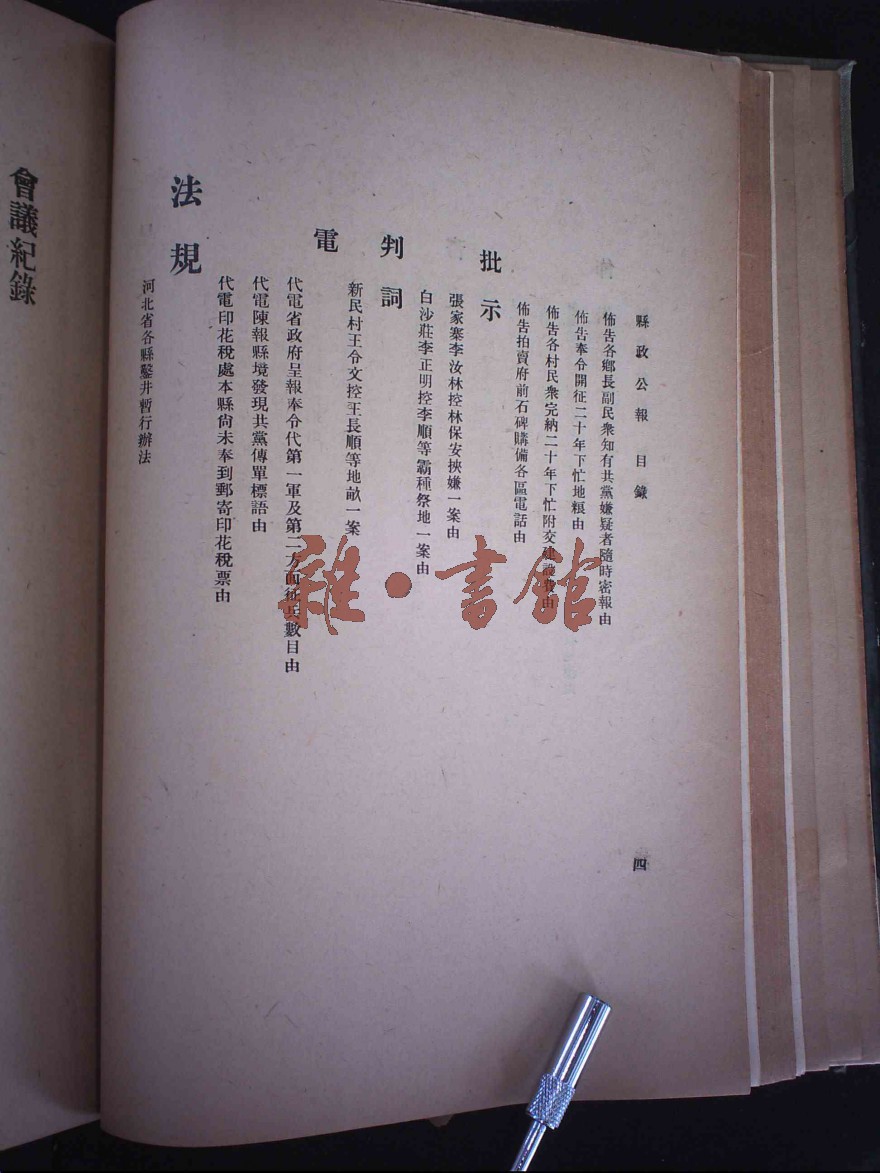 縣政公報 目錄
佈告各鄉長副民衆知有共黨嫌疑者隨時密報由
佈告奉令開征二十年下忙地粮由
佈告各村民衆完納二十年下忙附交建設費由
佈告拍賣府前石碑購備各區電話由
批示
張家寨李汝林控林保安挾嫌一案由
白沙莊李正明控李順等霸種祭地一案由
判詞
新民村王令文控王長順等地畝一案
電
代電省政府呈報奉令代第一軍及第二方面征兵數目由
代電陳報縣境發現共黨傳單標語由
代電印花稅處本縣尙未奉到郵寄印花稅票由
法規
河北省各縣鑿井暫行辦法
四
會議紀錄
雜·書館